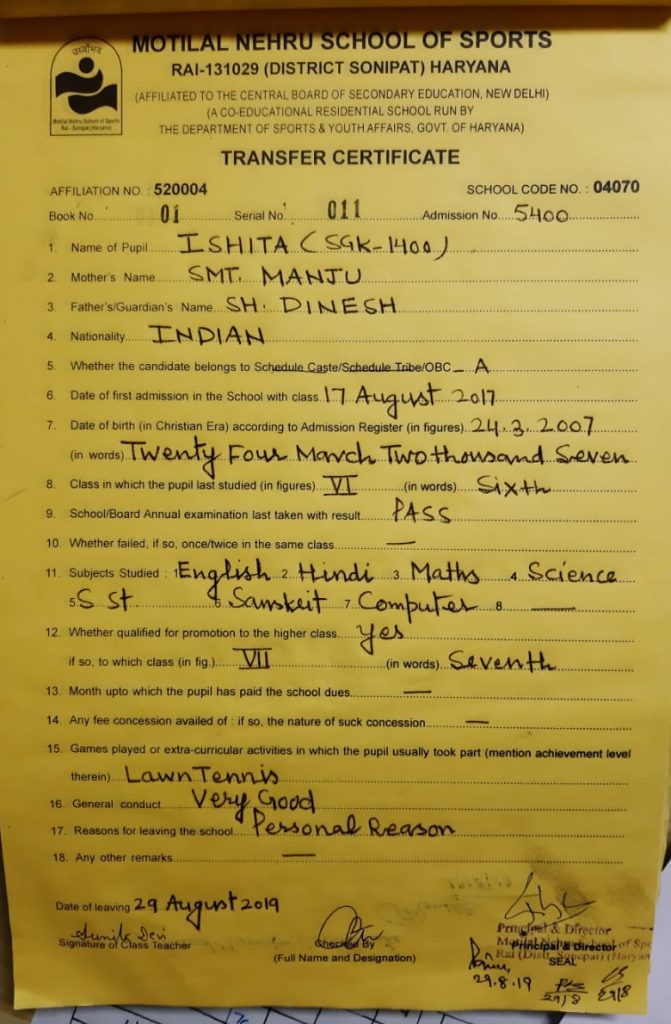 उद्योभव
Motilal Nehru School of Sports
Rai - Sonipat (Haryana)
MOTILAL NEHRU SCHOOL OF SPORTS
RAI-131029 (DISTRICT SONIPAT) HARYANA
(AFFILIATED TO THE CENTRAL BOARD OF SECONDARY EDUCATION, NEW DELHI)
(A CO-EDUCATIONAL RESIDENTIAL SCHOOL RUN BY
THE DEPARTMENT OF SPORTS & YOUTH AFFAIRS, GOVT. OF HARYANA)
TRANSFER CERTIFICATE
AFFILIATION NO. : 520004 SCHOOL CODE NO. : 04070
Book No. 01 Serial No. 011 Admission No. 5400
1. Name of Pupil ISHITA (SGK-1400)
2. Mother's Name SMT. MANJU
3. Father's/Guardian's Name SH. DINESH
4. Nationality INDIAN
5. Whether the candidate belongs to Schedule Caste/Schedule Tribe/OBC _ A
6. Date of first admission in the School with class 17 August 2017
7. Date of birth (in Christian Era) according to Admission Register (in figures) 24.3.2007
(in words) Twenty Four March Two thousand Seven
8. Class in which the pupil last studied (in figures) VI (in words) Sixth
9. School/Board Annual examination last taken with result PASS
10. Whether failed, if so, once/twice in the same class —
11. Subjects Studied : 1 English 2. Hindi 3. Maths 4. Science
5 S St 6. Sanskrit 7. Computer 8. —
12. Whether qualified for promotion to the higher class yes
if so, to which class (in fig.) VII (in words) Seventh
13. Month upto which the pupil has paid the school dues —
14. Any fee concession availed of : if so, the nature of suck concession —
15. Games played or extra-curricular activities in which the pupil usually took part (mention achievement level
therein) Lawn Tennis
16. General conduct Very Good
17. Reasons for leaving the school Personal Reason
18. Any other remarks —
Date of leaving 29 August 2019
Sunita Devi
Signature of Class Teacher
Checked By
(Full Name and Designation)
Principal & Director
Rai (Distt. Sonepat) (Haryan
Principal & Director
SEAL
29.8.19
29/8
29/8